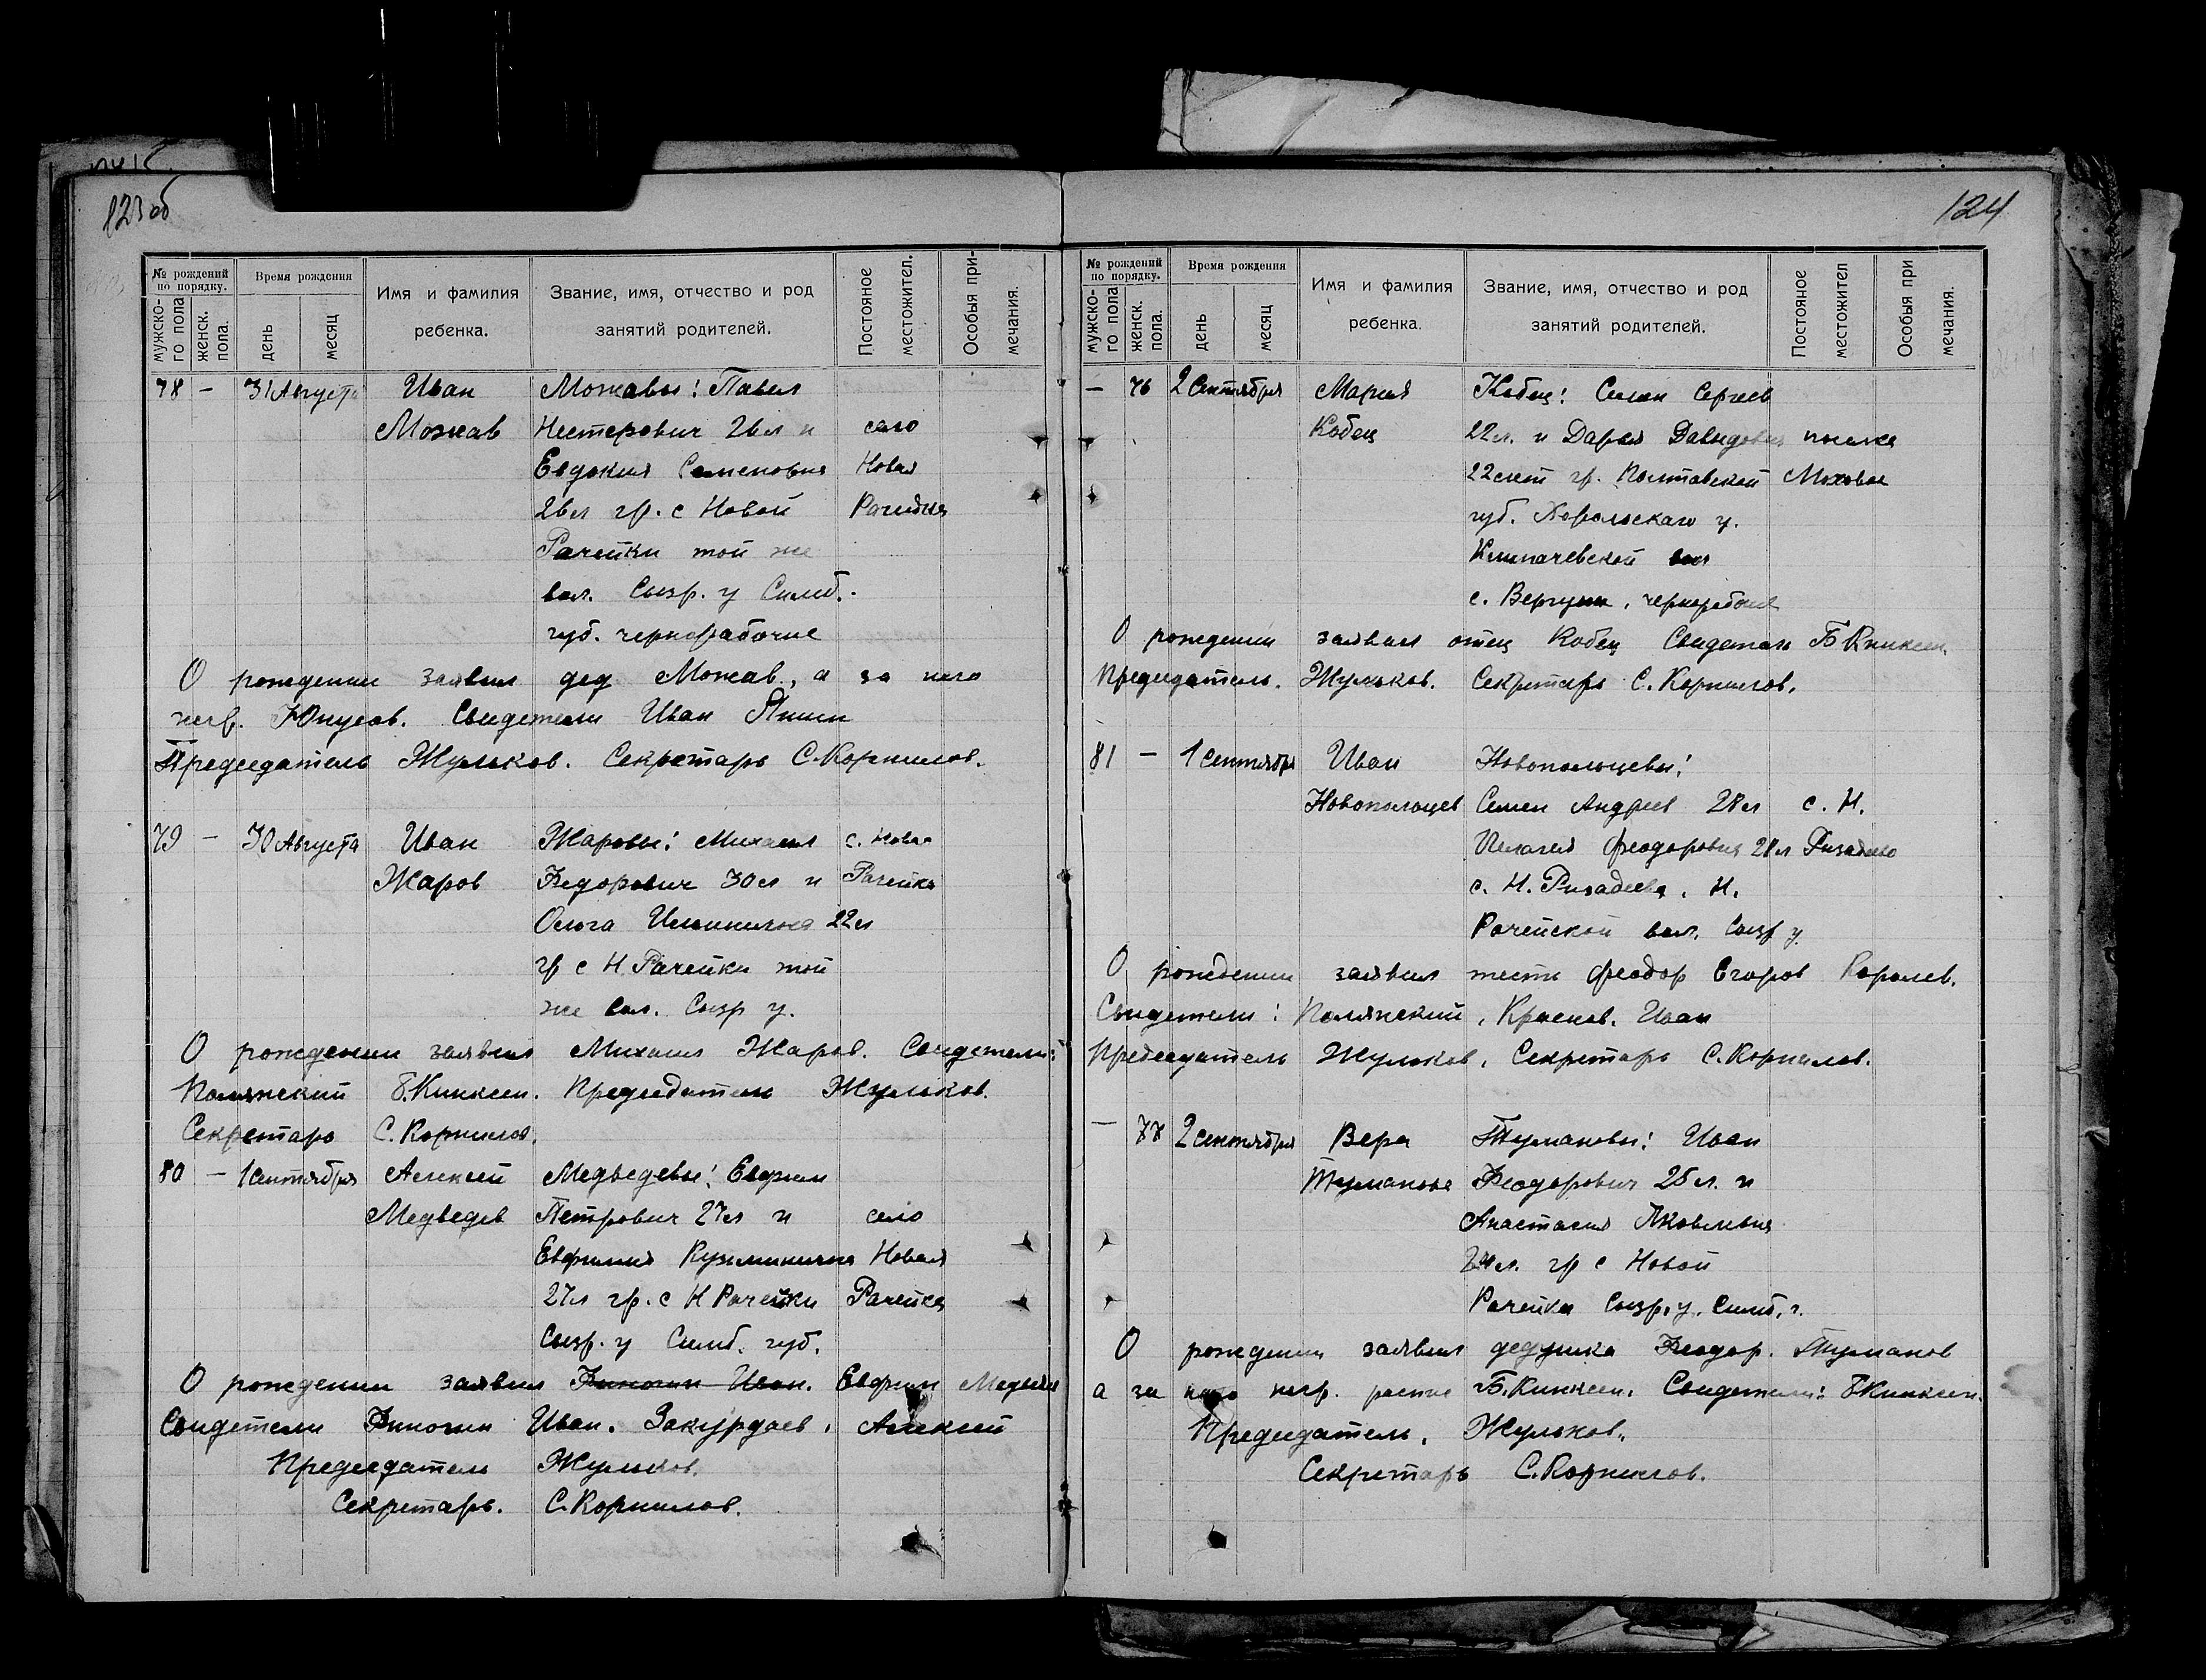 123об
№ рождений по порядку.
Время рождения
Имя и фамилия ребенка.
Звание, имя, отчество и род занятий родителей.
Постояное местожител.
Особыя примечания.
мужско-го пола
женск. пола.
день
месяц
78 — 31 Августа Иван Можавы: Павел
Можав Нестерович 26 л и село
Евдокия Семеновна Новая
26 л гр. с Новой Рачейка
Рачейки той же
вол. Сызр. у Симб.
губ. чернорабочие
О рождении заявил дед Можав, а за него
негр. Юнусов. Свидетели Иван
Председатель Жульков. Секретарь С. Корнилов.
79 — 30 Августа Иван Жаровы: Михаил с. Новая
Жаров Федорович 30 л и Рачейка
Ольга Ильинична 22 л
гр с Н Рачейки той
же вол. Сызр у.
О рождении заявил Михаил Жаров. Свидетели:
Полянский Б. Кинксен. Председатель Жульков.
Секретарь С. Корнилов.
80 — 1 Сентября Алексей Медведевы: Евфим
Медведев Петрович 27 л и село
Евфимия Кузьминична Новая
27 л гр. с Н Рачейки Рачейка
Сызр. у Симб. губ.
О рождении заявил Иван. Евфим
Свидетели Иван. Закурдаев, Алексей
Председатель Жульков.
Секретарь. С. Корнилов.
124
№ рождений по порядку.
Время рождения
Имя и фамилия ребенка.
Звание, имя, отчество и род занятий родителей.
Постояное местожител
Особыя при мечания.
мужско-го пола
женск. пола.
день
месяц
— 76 2 Сентября Мария Кобец: Семен Сергеев
Кобец 22 л. и Дарья Давыдовна
22 лет гр. Полтавской Моховое
губ. Хорольскаго у.
вол
с. Вергуны, чернорабочие
О рождении заявил отец Кобец Свидетель Б Кинксен.
Председатель. Жульков. Секретарь С. Корнилов.
81 — 1 Сентября Иван Новопольцевы:
Новопольцев Семен Андреев 28 л с. Н.
Пелагея Феодоровна 28 л Ризадеево
с. Н. Ризадеева, Н.
Рачейской вол. Сызр у.
О рождении заявил тесть Феодор Егоров Королев.
Свидетели: Полянский, Краснов. Иван
Председатель Жульков, Секретарь С. Корнилов.
— 77 2 Сентября Вера Тумановы: Иван
Туманова Феодорович 25 л. и
Анастасия Яковлевна
24 л. гр с Новой
Рачейки Сызр. у. Симб. г.
О рождении заявил дедушка Феодор. Туманов
а за него негр. распис Б. Кинксен. Свидетели: Б Кинксен.
Председатель. Жульков.
Секретарь С. Корнилов.